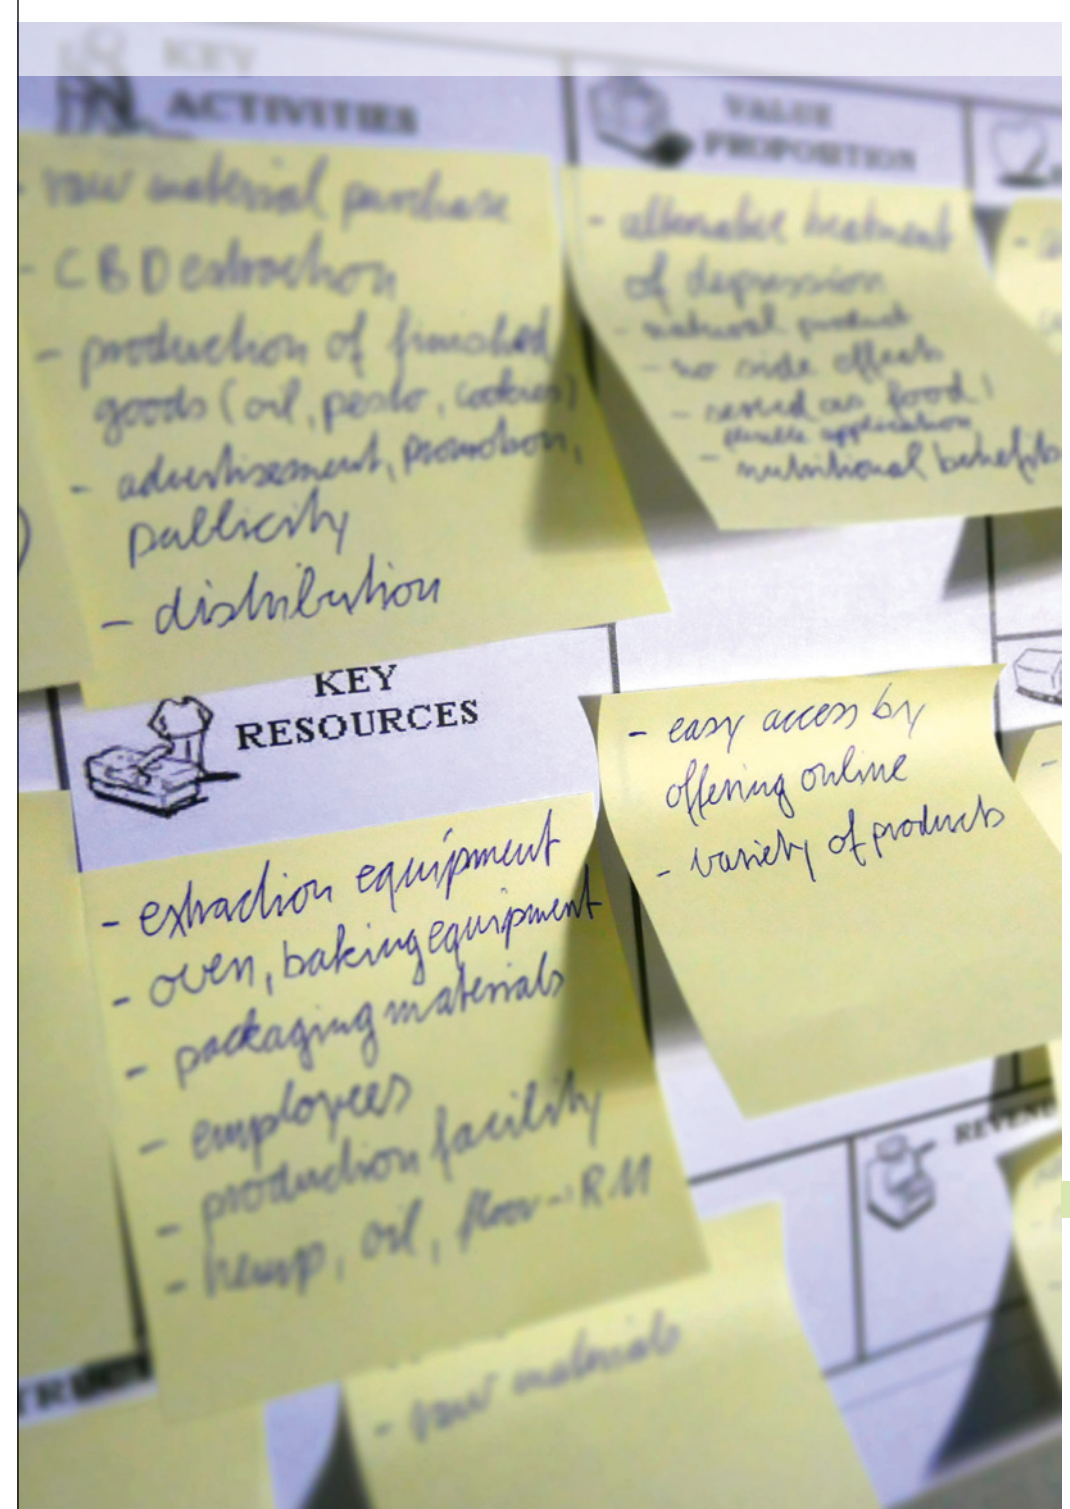 KEY
ACTIVITIES
- raw material purchase
- CBD extraction
- production of finished
goods (oil, pesto, cookies)
- advertisement, promotion,
publicity
- distribution
VALUE
PROPOSITION
- alternative treatment
of depression
- natural product
- no side effects
- served as food!
flexible application
- nutritional benefits
KEY
RESOURCES
- extraction equipment
- oven, baking equipment
- packaging materials
- employees
- production facility
- hemp, oil, floor → RM
- easy access by
offering online
- variety of products
- raw materials